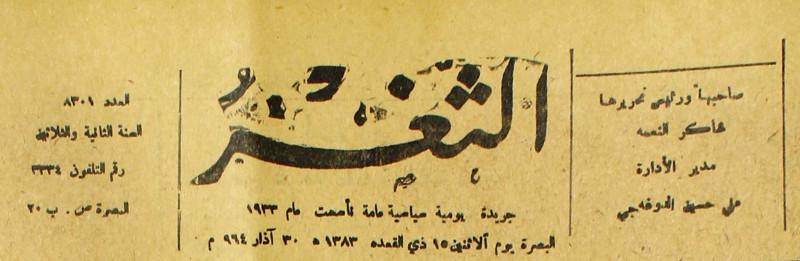 صاحبها ورئيس تحريرها
شاكر النعمه
مدير الأدارة
علي حسين
الثغر
جريدة يومية سياسية عامة تأسست عام ١٩٣٣
البصرة يوم الاثنين ١٥ ذي القعده ١٣٨٣ ه ٣٠ آذار ٩٦٤ م
العدد ٨٣٠١
السنة الثانية والثلاثين
رقم التلفون ٣٣٣٤
البصرة ص. ب ٢٠